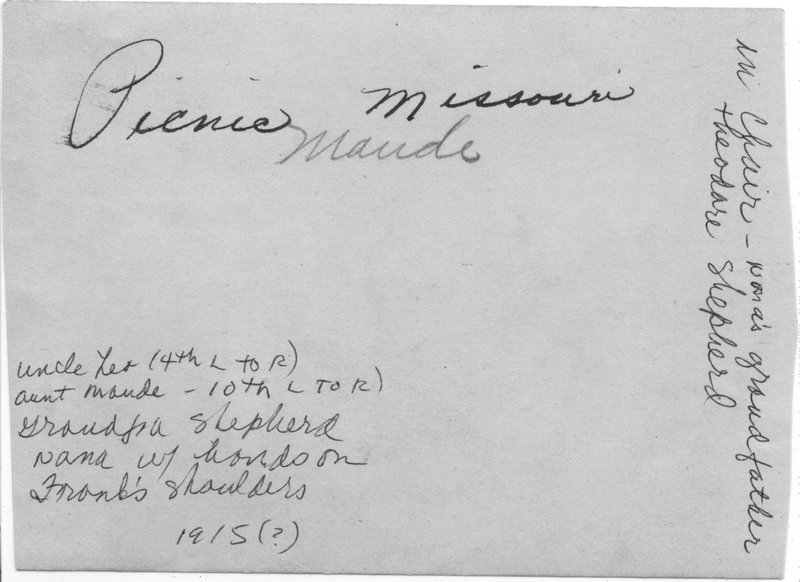 Picnic Missouri
Maude
uncle Leo (4th L TO R)
aunt Maude - 10th L TO R)
Grandpa Shepherd
Nana w/ hands on
Frank's shoulders
1915 (?)
in Chair - Nona's grandfather
Theodore Shepherd